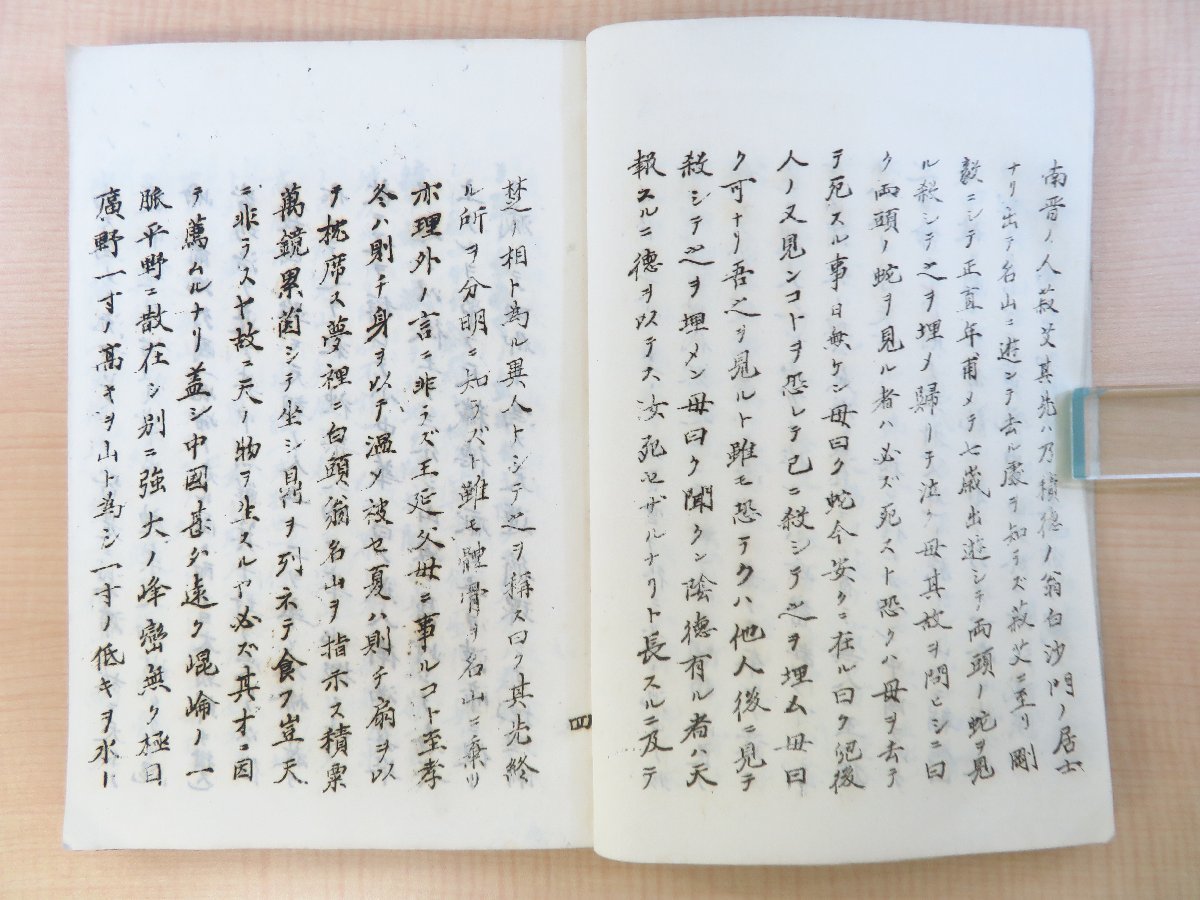 南晋ノ人菽艾其先ハ乃積德ノ翁白沙門ノ居士
ナリ出テ名山ニ遊ンテ去ル處ヲ知ラズ菽艾ニ至リ剛
毅ニシテ正直年甫メテ七歳出遊シテ両頭ノ蛇ヲ見
ル殺シテ之ヲ埋メ歸リテ泣ク母其故ヲ問ヒシニ曰
ク両頭ノ蛇ヲ見ル者ハ必ズ死スト恐クハ母ヲ去テ
テ死スル事日無ケン母曰ク蛇今安クニ在ル曰ク児後
人ノ又見ンコトヲ恐レテ已ニ殺シテ之ヲ埋ム母曰
ク可ナリ吾之ヲ見ルト雖モ恐テクハ他人後ニ見テ
殺シテ之ヲ埋メン母曰ク聞クン陰德有ル者ハ天
報スルニ德ヲ以テス汝死セザルナリト長スルニ及テ
楚ノ相ト為ル異人トシテ之ヲ稱ス曰ク其先終
ル所ヲ分明ニ知ラズト雖モ體骨ヲ名山ニ棄リ
亦理外ノ言ニ非ラズ王延父母ニ事ルコト至孝
冬ハ則チ身ヲ以テ温メ被セ夏ハ則チ扇ヲ以
テ枕席ス夢裡ニ白頭翁名山ヲ指示ス積粟
萬鏡累茵シテ坐シ鼎ヲ列ネテ食フ豈天
ニ非ラスヤ故ニ天ノ物ヲ生スルヤ必ズ其才ニ因
テ萬ムルナリ蓋シ中國甚タ遠ク崐崘ノ一
脈平野ニ散在シ別ニ強大ノ峰巒無ク極目
廣野一寸ノ高キヲ山ト為シ一寸ノ低キヲ水ー
四